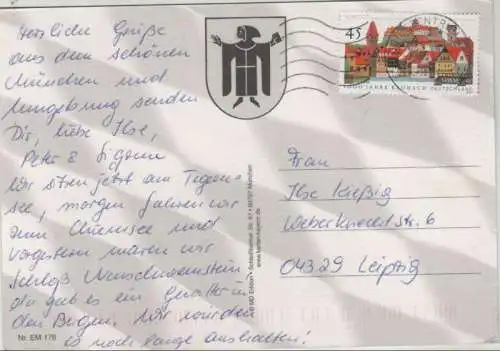 Herzliche Grüße
aus dem schönen
München und
Umgebung senden
Dir, liebe Ilse,
Peter &
Wir sitzen jetzt am Tegern-
see, morgen fahren wir
zum Chiemsee und
vorgestern waren wir
Schloß Neuschwanstein
da gab es ein Gewitter in
den Bergen. Wir würden
es noch lange aushalten!
Nr. EM 178
45
1000 JAHRE KRONACH DEUTSCHLAND
Frau
Ilse Kießig
Weberknechtstr. 6
04329 Leipzig